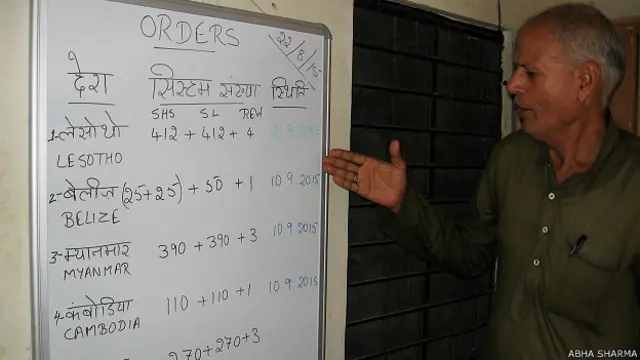 ORDERS
22/8/15
देश सिस्टम संख्या स्थिति
SHS SL REW
1-लेसोथो 412 + 412 + 4
LESOTHO
2-बेलीज (25+25) + 50 + 1 10.9.2015
BELIZE
3-म्यानमार 390 + 390 + 3 10.9.2015
MYANMAR
4-कंबोडिया 110 + 110 + 1 10.9.2015
CAMBODIA
270 + 270 + 3
ABHA SHARMA